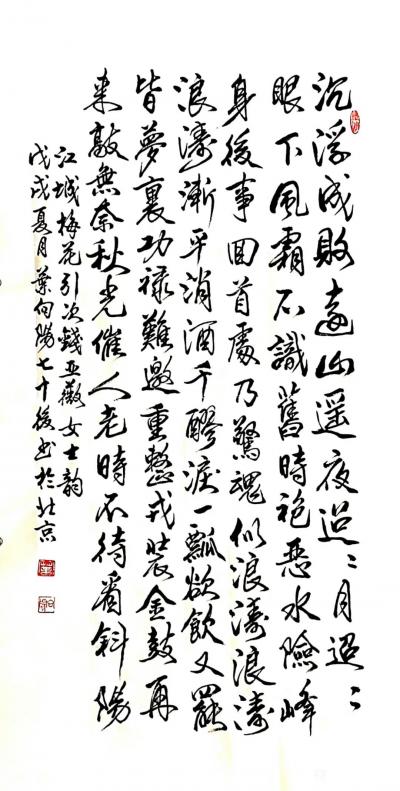 沉浮成敗遠山遥夜迢〻月迢〻
眼下風霜不識舊時袍惡水險峰
身後事回首處乃驚魂似浪濤浪濤
浪濤漸平消酒千醪淚一瓢欲飲又罷
皆夢裏功禄難邀重整戎裝金鼓再
來敲無奈秋光催人老時不待看斜陽
江城梅花引次錢亚薇女士韵
戊戌夏月葉向陽七十後书於北京